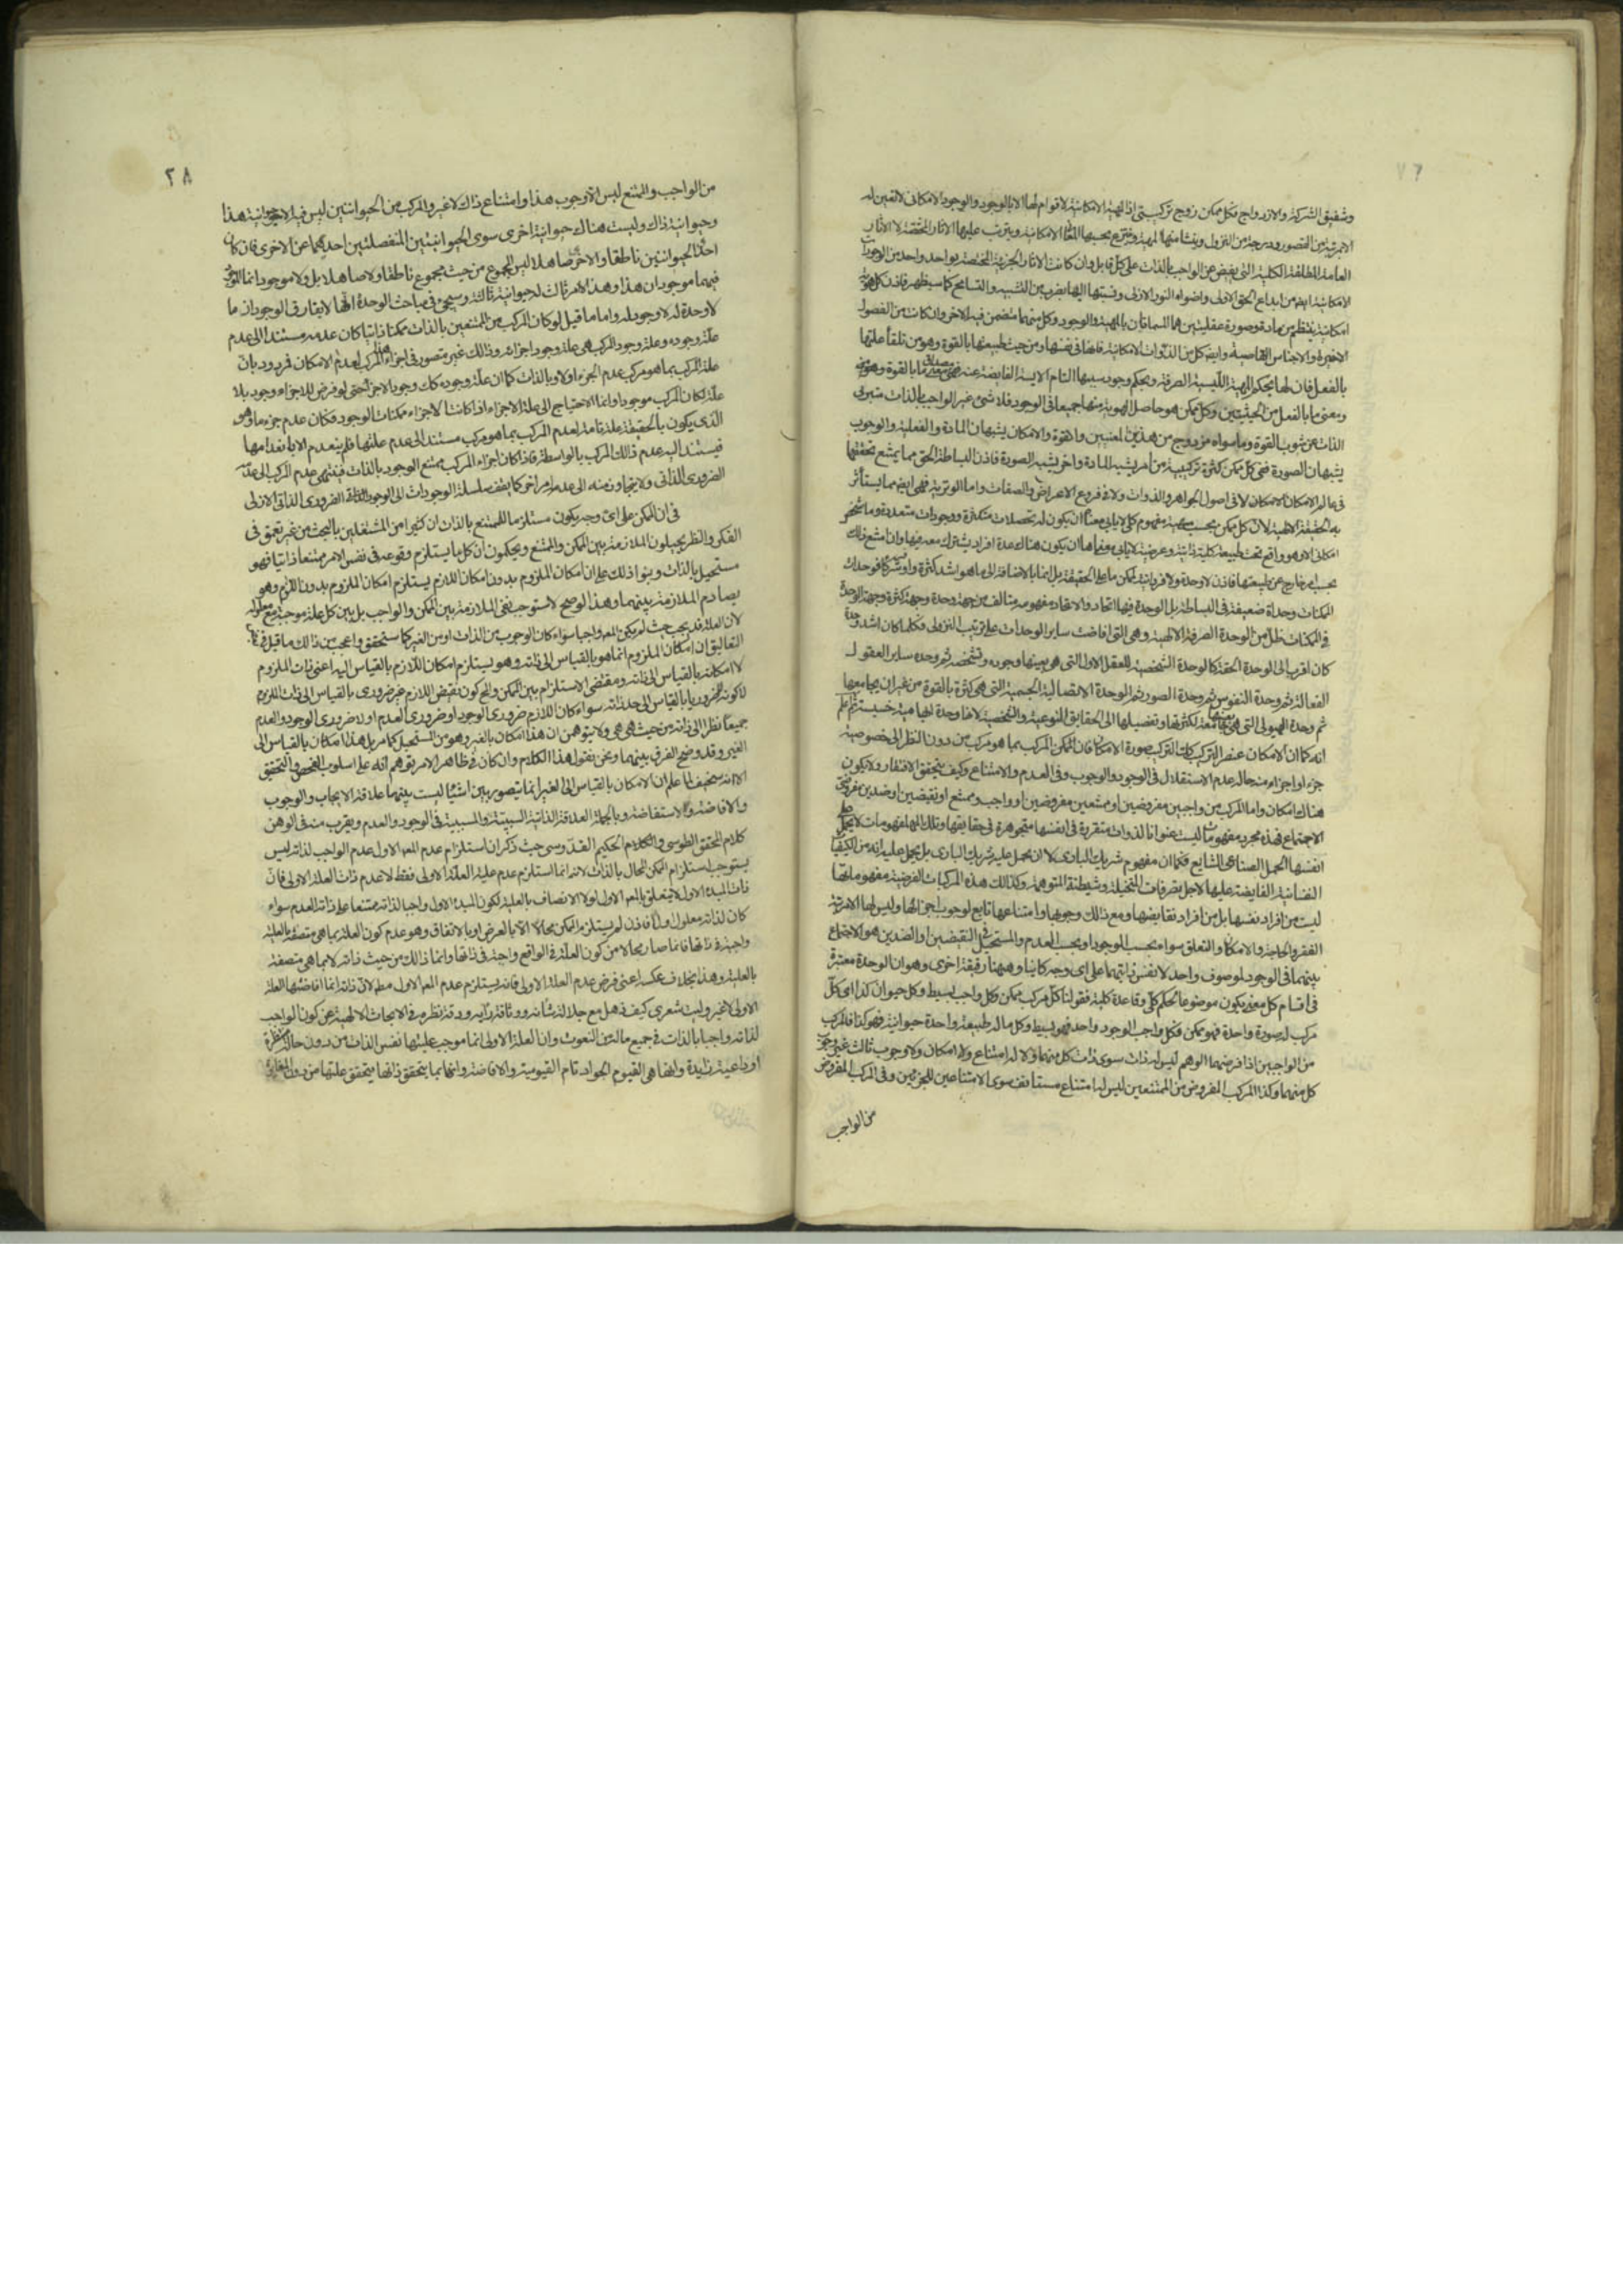 وشفيق الشركة والازدواج فكل ممكن زوج تركيبى اذ المهية الامكانية لا قوام لها الا بالوجود والوجود الامكانى لا تعين له
الا بمرتبة من القصور ودرجة من النزول وينشا منها المهية وينتزع بحسبها المعانى الامكانية ويترتب عليها الاثار المختصة لا الاثار
العامة المطلقة الكلية التى يفيض عن الواجب بالذات على كل قابل وان كانت الاثار الجزئية المختصة بواحد واحد من الوجودات
الامكانية ايضا من ابداع الحق الاولى واضواء النور الازلى ونسبتها اليها بضرب من التشبيه والتسامح كما سيظهر فاذن كل هوية
امكانية ينتظم من مادة وصورة عقليتين هما المسماتان بالمهية والوجود وكل منهما متضمن فيه الاخر وان كانت من الفصول
الاخيرة والاجناس القاصية وايضا كل من الذوات الامكانية فانها فى نفسها ومن حيث طبيعتها بالقوة وهو من تلقاء علتها
بالفعل فان لها بحكم المهية الليسية الصرفة وبحكم وجود سببها التام الايسية الفايضة عنه فهى مصداق معنى ما بالقوة
ومعنى ما بالفعل من الحيثيتين وكل ممكن هو حاصل الهوية منهما جميعا فى الوجود فلا شئ غير الواجب بالذات متبرى
الذات عن شوب القوة وما سواه مزدوج من هذين المعنيين والقوة والامكان يشبهان المادة والفعلية والوجوب
يشبهان الصورة ففى كل ممكن كثرة تركيبية من امر يشبه المادة واخر يشبه الصورة فاذن البساطة الحقة مما يمتنع تحققها
فى عالم الامكان لا فى اصول الجواهر والذوات ولا فى فروع الاعراض والصفات واما الوترية فهى ايضا مما يستأثر
به الحقيقة الالهية لان كل ممكن بحسب مهيته مفهوم كلى لا يابى معناه ان يكون له تحصلات متكثرة ووجودات متعددة وما شخص
امكانى الا وهو واقع تحت طبيعة كلية ذاتية او عرضية لا يابى معناها ان يكون هناك عدة افراد يشترك معه فيها وان امتنع ذلك
بحسب امر خارج عن طبيعتها فاذن لا وحدة ولا فردانية لممكن ما على الحقيقة بل انما بالاضافة الى ما هو اشد كثرة واوفر شركا فوحدات
الممكنات وحداة ضعيفة فى البساطة بل الوحدة فيها اتحاد والاتحاد مفهومه متالف من جهة وحدة وجهة كثرة وجهة الوحدة
فى الممكنات ظل من الوحدة الصرفة الالهية وهى التى افاضت سائر الوحدات على ترتيب النزولى فكلما كان اشد وحدة
كان اقرب الى الوحدة الحقة كالوحدة الشخصية للعقل الاول التى هى بعينها وجوده وتشخصه ثم وحدة ساير العقول
الفعالة ثم وحدة النفوس ثم وحدة الصور ثم الوحدة الاتصالية الجسمية التى هى كثرة بالقوة من غير ان يجامعها
ثم وحدة الهيولى التى هى بعينها جامعة لكثرتها وتفصيلها الى الحقايق النوعية والشخصية لانها وحدة ابهامية جنسية ثم اعلم
انه كما ان الامكان عنصر التركيب كذلك التركيب صورة الامكان فان الممكن المركب بما هو مركب من دون النظر الى خصوصية
جزء او اجزاء منه حاله عدم الاستقلال فى الوجود والوجوب وفى العدم والامتناع وكيف يتحقق الافتقار ولا يكون
هناك امكان واما المركب من واجبين مفروضين او ممتنعين مفروضين او واجب وممتنع او نقيضين او ضدين مفروضى
الاجتماع فهذه مجرد مفهومات ليست عنوانا لذوات متقررة فى انفسها متجوهرة فى حقايقها وتلك المفهومات لا يحمل على
انفسها بالحمل الصناعى الشايع فكما ان مفهوم شريك البارى لا ان يحمل عليه شريك البارى بل يحمل عليه انه من الكيفيات
النفسانية الفايضة عليها لاجل تصرفات المتخيلة وشيطنة المتوهمة وكذلك هذه المركبات الفرضية مفهوماتها
ليست من افراد نفسها بل من افراد نقايضها ومع ذلك وجوبها وامتناعها تابع لوجوب اجزائها وليس لها الا مرتبة
الفقر والحاجة والامكان والتعلق سواء بحسب الوجود او بحسب العدم والمستحيل فى النقيضين او الضدين هو الاجتماع
بينهما فى الوجود لموصوف واحد لا نفس ذاتيهما على اى وجه كانا وههنا دقيقة اخرى وهو ان الوحدة معتبرة
فى اقسام كل معنى يكون موضوعا لحكم كلى وقاعدة كلية فقولنا كل مركب ممكن وكل واجب بسيط وكل حيوان كذا اى كل
مركب له صورة واحدة فهو ممكن وكل واجب الوجود واحد فهو بسيط وكل ما له طبيعة واحدة حيوانية فهو كذا فالمركب
من الواجبين اذا فرضهما الوهم ليس له ذات سوى ذات كل منهما ولا له امتناع ولا امكان ولا وجوب ثالث غير وجوب
كل منهما وكذا المركب المفروض من الممتنعين ليس له امتناع مستانف سوى الامتناعين للجزئين وفى المركب المفروض
من الواجب
٢٨
من الواجب والممتنع ليس الا وجوب هذا وامتناع ذاك لا غير والمركب من الحيوانين ليس فيه الا حيوانية هذا
وحيوانية ذاك وليست هناك حيوانية اخرى سوى الحيوانيتين المنفصلتين احديهما عن الاخرى فان كان
احد الحيوانين ناطقا والاخر صاهلا ليس المجموع من حيث مجموع ناطقا ولا صاهلا بل ولا موجود انما الموجود
فيهما موجودان هذا وهذا لا امر ثالث له حيوانية ثالثة وسيجئ فى مباحث الوحدة انها لا يفارق الوجود ان ما
لا وحدة له لا وجود له واما ما قيل لو كان المركب من الممتنعين بالذات ممكنا ذاتيا كان عدمه مستندا الى عدم
علة وجوده وعلة وجود المركب هى علة وجود اجزائه وذلك غير متصور فى اجزاء هذا المركب لعدم الامكان فمردود بان
علة المركب بما هو مركب عدم الجزء اولا وبالذات كما ان علة وجوده كك وجود الاجزاء حتى لو فرض للاجزاء وجود بلا
علة لكان المركب موجودا وانما الاحتياج الى علة الاجزاء اذا كانت الاجزاء ممكنات الوجود فكان عدم جزء ما وهو
الذى يكون بالحقيقة علة تامة لعدم المركب بما هو مركب مستند الى عدم علتها فلم ينعدم الا بانعدامها
فيستند اليه عدم ذلك المركب بالواسطة فاذا كان اجزاء المركب ممتنع الوجود بالذات فينتهى عدم المركب الى عدمه
الضرورى الذاتى ولا يتجاوز منه الى عدم امر اخر كما يقف سلسلة الوجودات الى الوجود الضرورى الذاتى الازلى
فى ان الممكن على اى وجه يكون مستلزما للممتنع بالذات ان كثيرا من المشتغلين بالبحث من غير تعمق فى
الفكر والنظر يحيلون الملازمة بين الممكن والممتنع ويحكمون ان كل ما يستلزم وقوعه فى نفس الامر ممتنعا ذاتيا فهو
مستحيل بالذات وبنوا ذلك على ان امكان الملزوم بدون امكان اللازم يستلزم امكان الملزوم بدون اللازم وهو
يصادم الملازمة بينهما وهذا لو صح لاستوجب نفى الملازمة بين الممكن والواجب بل بين كل علة موجبة مع معلوله
لان العلة قد يجب حيث لم يكن المعلول واجبا سواء كان الوجوب من الذات او من الغير كما ستحقق واعجب من ذلك ما قيل فى
التعاليق ان امكان الملزوم انما هو بالقياس الى ذاته وهو يستلزم امكان اللازم بالقياس اليه اعنى ذات الملزوم
لا امكانه بالقياس الى ذاته ومقتضى الاستلزام بين الممكن والمح كون نقيض اللازم غير ضرورى بالقياس الى ذات الملزوم
لا كونه ضروريا بالقياس الى حد ذاته سواء كان اللازم ضرورى الوجود او ضرورى العدم او لا ضرورى الوجود والعدم
جميعا نظرا الى ذاته من حيث هى هى ولا يتوهمن ان هذا امكان بالغير وهو من المستحيل كما مر بل هذا امكان بالقياس الى
الغير وقد وضح الفرق بينهما ونحن نقول هذا الكلام وان كان فى ظاهر الامر يتوهم انه على اسلوب الفحص والتحقيق
الا انه سخيف لما علم ان الامكان بالقياس الى الغير انما يتصور بين اشياء ليست بينهما علاقة الايجاب والوجوب
والافاضة والاستفاضة وبالجملة العلاقة الذاتية السببية والمسببية فى الوجود والعدم ويقرب منه فى الوهن
كلام المحقق الطوسى والكلام الحكيم القدوسى حيث ذكر ان استلزام عدم المعلول الاول عدم الواجب لذاته ليس
يستوجب استلزام الممكن المحال بالذات لانه انما استلزم عدم علية العلة الاولى فقط لا عدم ذات العلة الاولى فان
ذات المبدء الاول لا يتعلق بالمعلول الاول لولا الاتصاف بالعلية لكون المبدء الاول واجبا لذاته ممتنعا على ذاته العدم سواء
كان لذاته معلول اولا فاذن لم يستلزم الممكن محالا الا بالعرض او بالاتفاق وهو عدم كون العلة بما هى متصفة بالعلية
واجبة فى ذاتها فانما صار محالا من كون العلة فى الواقع واجبة فى ذاتها وانما ذلك من حيث ذاته لا بما هى متصفة
بالعلية وهذا بخلاف عكسه اعنى فرض عدم العلة الاولى فانه يستلزم عدم المعلول الاول مطلقا لان ذاته انما افاضتها العلة
الاولى لا غير وليت شعرى كيف ذهل مع جلالة شانه ووثاقة رأيه ودقة نظره فى الابحاث الالهية عن كون الواجب
لذاته واجبا بالذات فى جميع ما له من النعوت وان العلة الاولى انما موجب عليتها نفس الذات من دون حالة منتظرة
او داعية زايدة وانها هى القيوم الجواد تام القيومية والافاضة وانها بما يتحقق ذاتها يتحقق عليتها من دون المغايرة